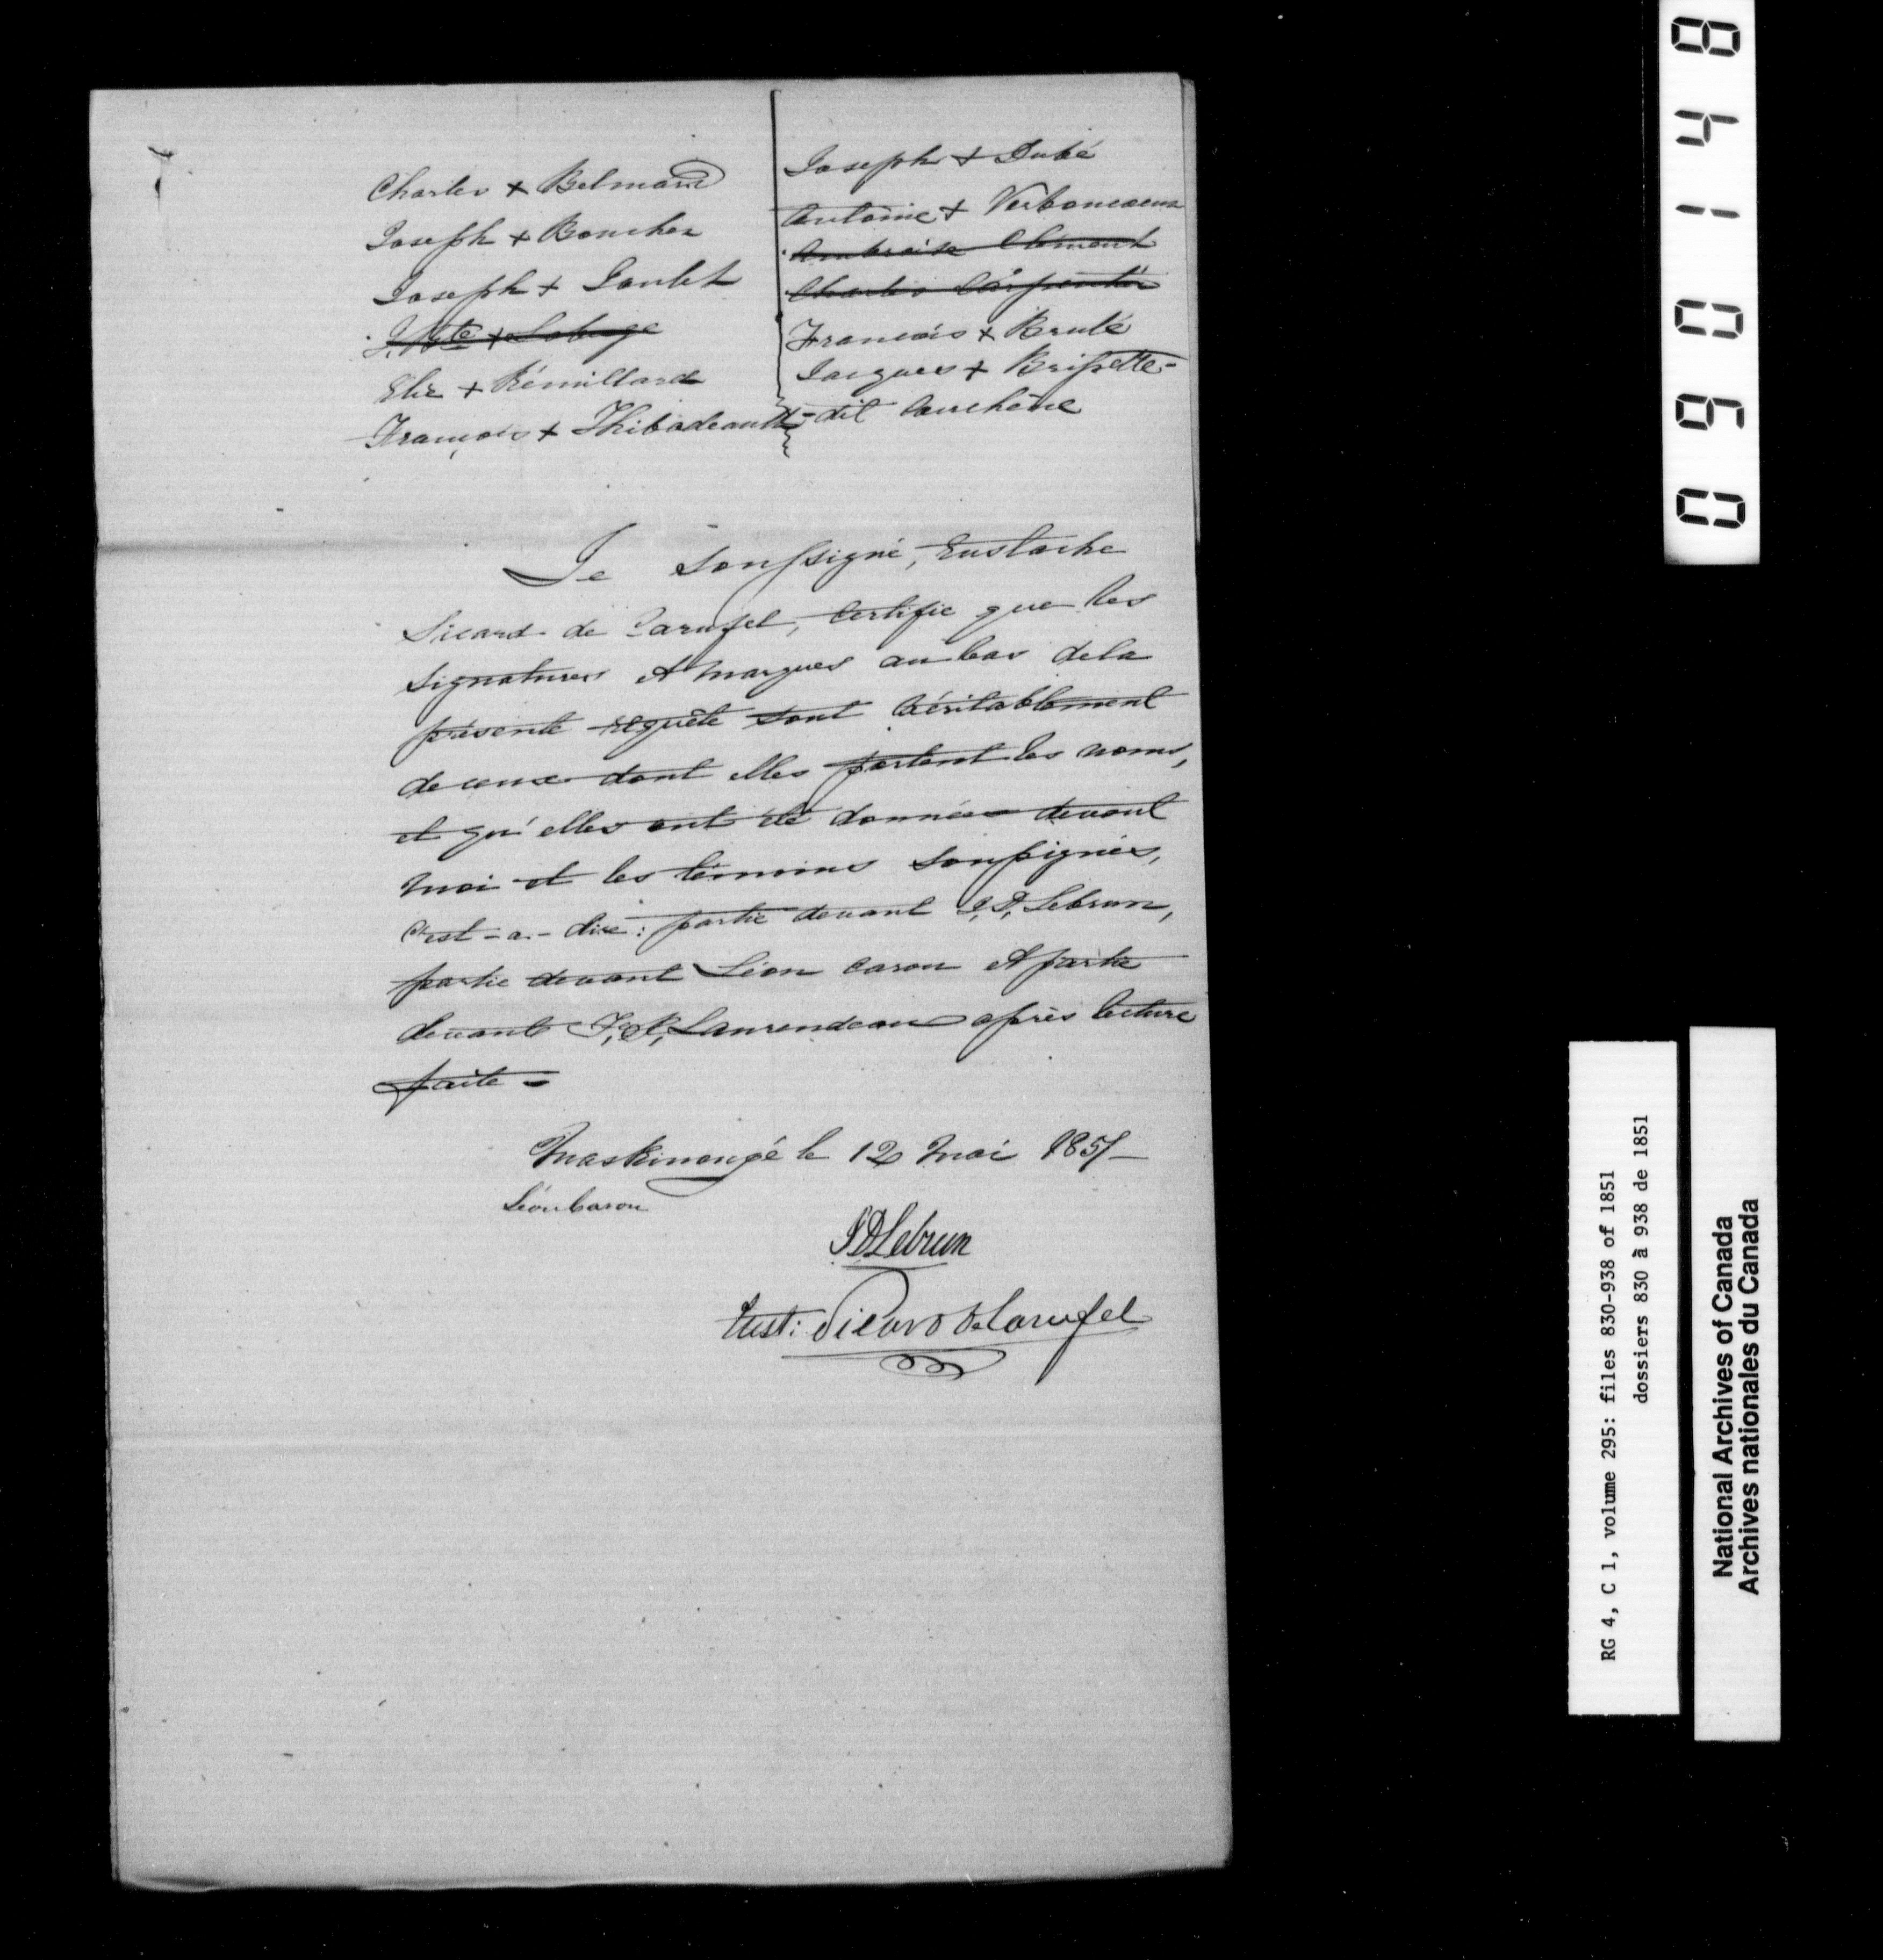 Charles + Belmard
Joseph + Boucher
Joseph + Goulet
J. Bte + Lebuge
Elie + Rémillard
François + Thibodeault
Joseph + Dubé
Antoine + Verboncoeur
Ambroise Clément
Charles Carpentier
Francois + Brulé
Jacques + Brissette-
-dit Courchêne
Je Soussigné, Eustache
Sicard de Carufel, Certifie que les
signatures et marques au bas de la
présente requête sont véritablement
de ceux dont elles portent les noms,
et qu'elles ont été données devant
moi et les témoins soussignés,
C'est-a-dire: partie devant J, D, Lebrun,
partie devant Léon Caron et partie
devant F, X, Laurendeau après lecture
faite -
Maskinongé le 12 Mai 1851-
Léon Caron
J D Lebrun
Eust: Sicard De Carufel
090148
RG 4, C 1, volume 295: files 830-938 of 1851
dossiers 830 à 938 de 1851
National Archives of Canada
Archives nationales du Canada